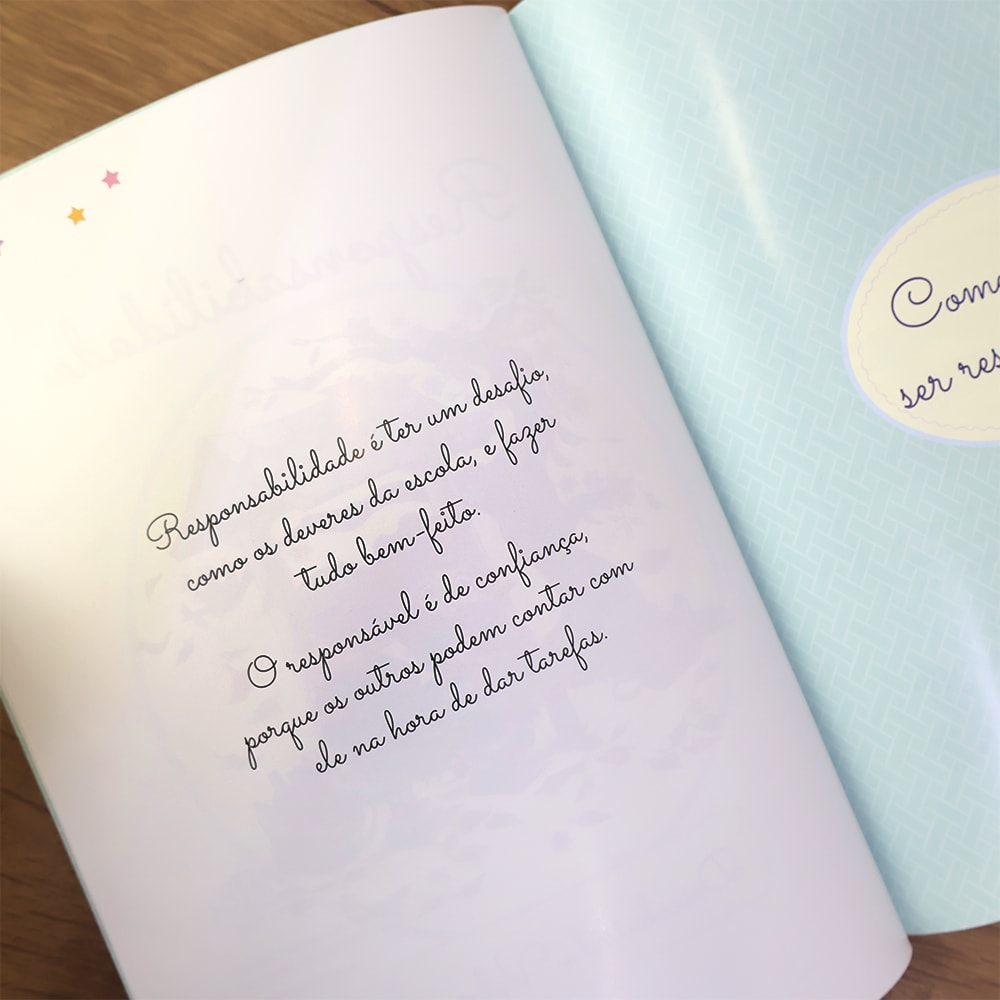 Responsabilidade é ter um desafio,
como os deveres da escola, e fazer
tudo bem-feito.
O responsável é de confiança,
porque os outros podem contar com
ele na hora de dar tarefas.
ser